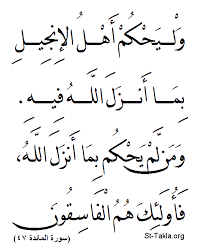 وَلْيَحْكُمْ أَهْلُ الإِنْجِيلِ
بِمَا أَنْزَلَ اللَّهُ فِيهِ.
وَمَن لَّمْ يَحْكُم بِمَا أَنزَلَ اللَّهُ،
فَأُولَئِكَ هُمُ الْفَاسِقُونَ
(سورة المائدة ٤٧)
St-Takla.org